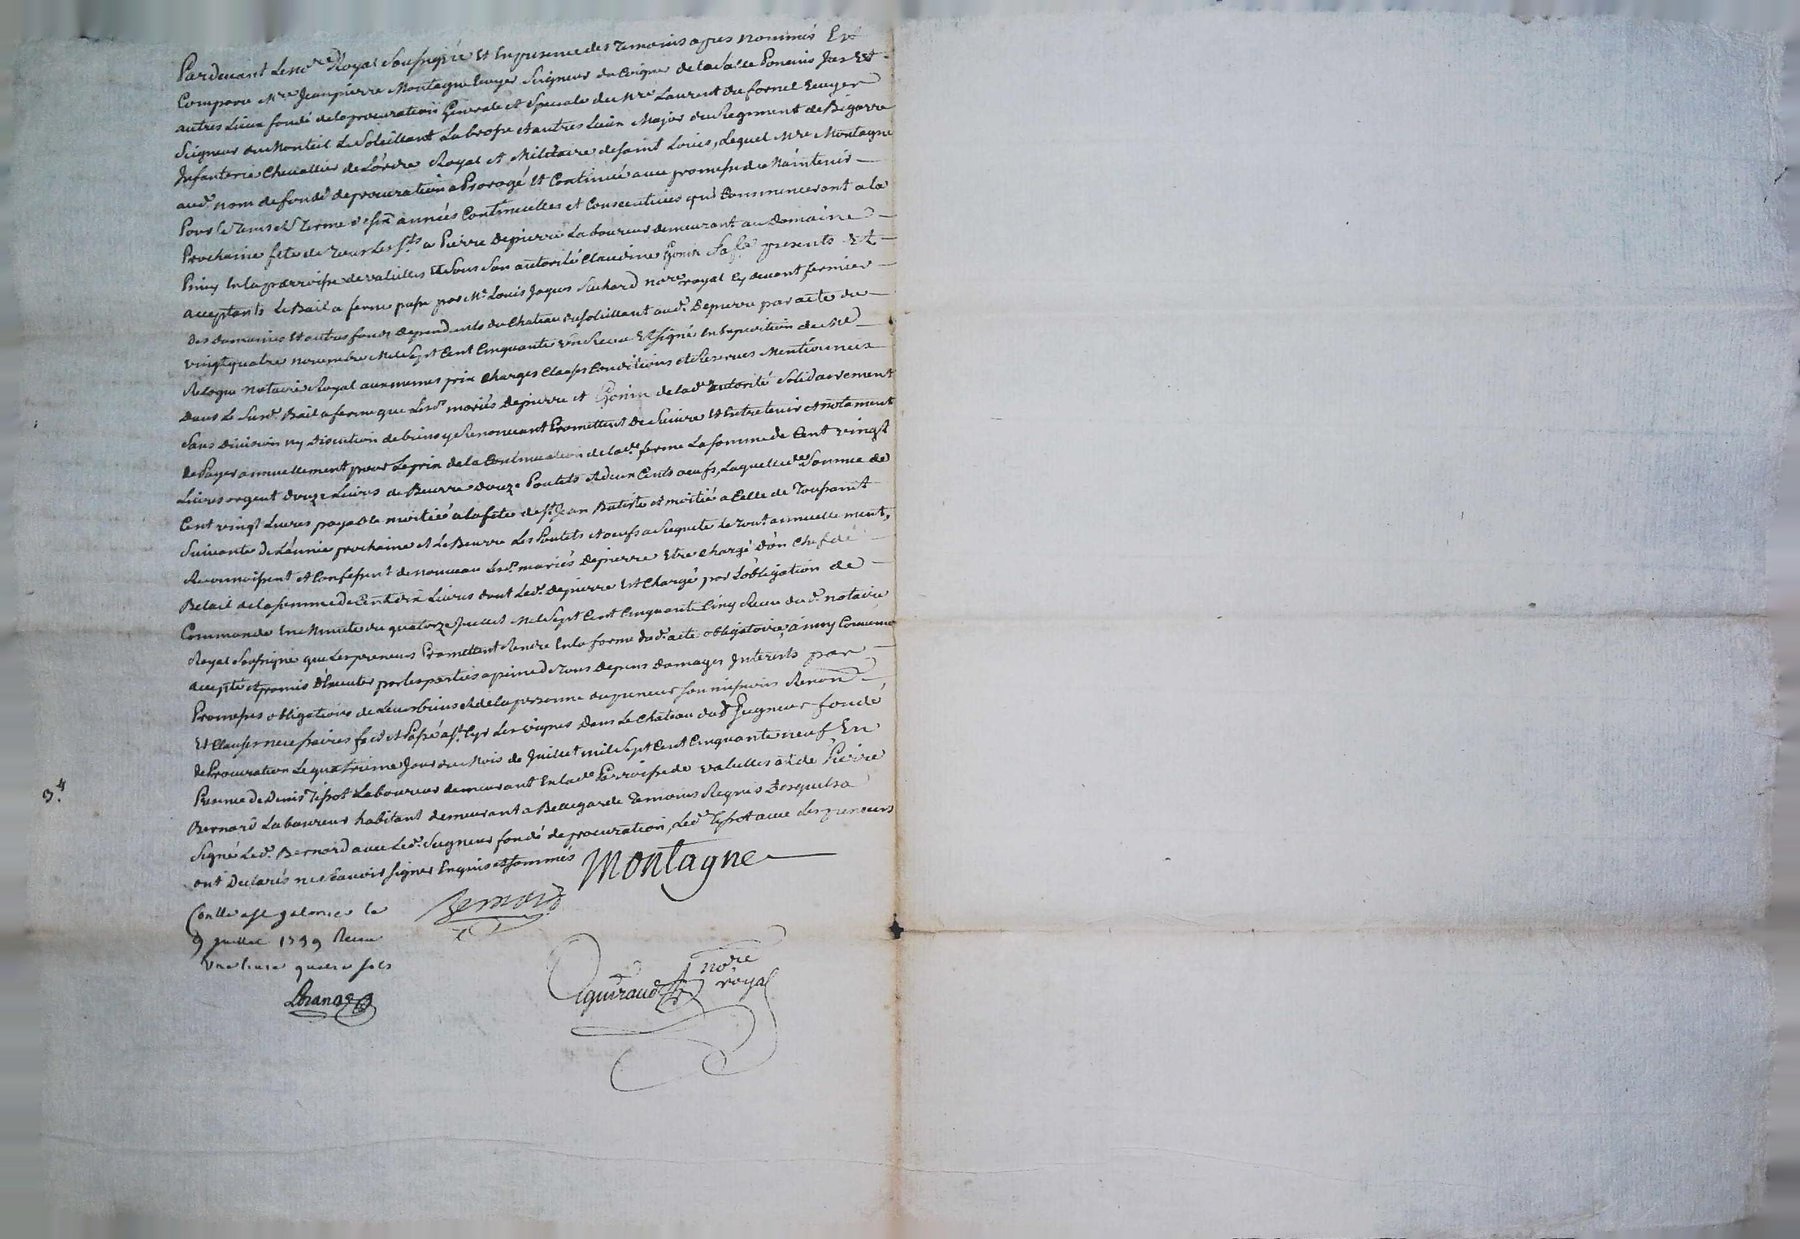 Pardevant Le no.re Royal Soussigné Et En presence des Temoins apres nommés Est
Comparu M.re Jean pierre Montagne Ecuyer Seigneur du Poyne de La Salle Poncins Jas Et
autres Lieux fondé de la procuration Generale et Speciale de M.re Laurent du fornel Ecuyer
Seigneur du Monteil Le Soleillant La brosse et autres Lieux Major du Regiment de Bigorre
Infanterie Chevallier de L'ordre Royal et Militaire de Saint Louis, Lequel M.re Montagne
aud. nom de fondé de procuration a Prorogé Et Continué avec promesse de Maintenir
Pour le Tems et Terme de six années Continuelles et Consecutives qui Commenceront a la
Prochaine fete de Tous Les S.ts a Pierre Depierre Laboureur demeurant au Domaine
En la parroisse de valeilles Et Sous Son autorité Claudine Sa f.e presents Et
acceptants Le Bail a ferme passé par M.e Louis Jaques Richard no.re royal Cy devant fermier
Des domaines Et autres fonds Dependents du Chateau du Soleillant aud. Depierre par acte du
vingt quatre novembre Mil Sept Cent Cinquante un Receu Et Signé En Expedition de M.e
Notaire Royal aux memes prix Charges Clauses Conditions et Reserves Mentionnées
Dans Le Susd. Bail a ferme que Lesd. mariés Depierre et de lad. autorité Solidairement
Sans Division ny Discution de biens y Renonceant Promettent De Suivre Et Entretenir et notament
de Payer annuellement pour Le prix de la Continuation de lad. ferme La Somme de Cent vingt
Livres argent Douze Livres de Beurre Douze Poulets et deux Cents oeufs, Laquelle d. Somme de
Cent vingt Livres payable moitié a la fete de S.t Jean Batiste et moitié a Celle de Toussaint
Suivante de L'année prochaine et Le Beurre Les Poulets et oeufs a Requete Le Tout annuellement,
Reconnoissent et Confessent de nouveau Lesd. mariés Depierre Etre Chargé d'un Chef de
Betail de la Somme De Cent dix Livres dont Led. Depierre Est Chargé par L'obligation de
Commande En Minute du quatorze Juillet Mil Sept Cent Cinquante Cinq Receu du d. notaire
Royal Soussigné que Les preneurs Promettent Rendre En la forme dud. acte obligatoire, ainsy Convenu
accepté et promis D'executer par Les parties a peine de Tous Depens Damages Interets par
Promesses obligations de Leurs biens et de la personne du preneur Soumissions Renon.
Et Clauses necessaires fait et Passé a S.t Cyr Les vignes Dans Le Chateau dud. Seigneur fondé
de Procuration Le quatrieme Jour du Mois de Juillet mil Sept Cent Cinquante neuf En
Presence De Denis Tissot Laboureur demeurant En lad. Parroisse de valeilles et de Pierre
Bernard Laboureur habitant demeurant a Bellegarde Temoins Requis Desquels a
Signé Led. Bernard avec Led. Seigneur fondé de procuration, Led. Tissot avec Les preneurs
ont Declarés ne Scavoir Signer Enquis et Sommés Montagne
Bernard
Conllé a S.t galmier le
9 juillet 1759 Receu
une livre quatre sols
no.re
royal